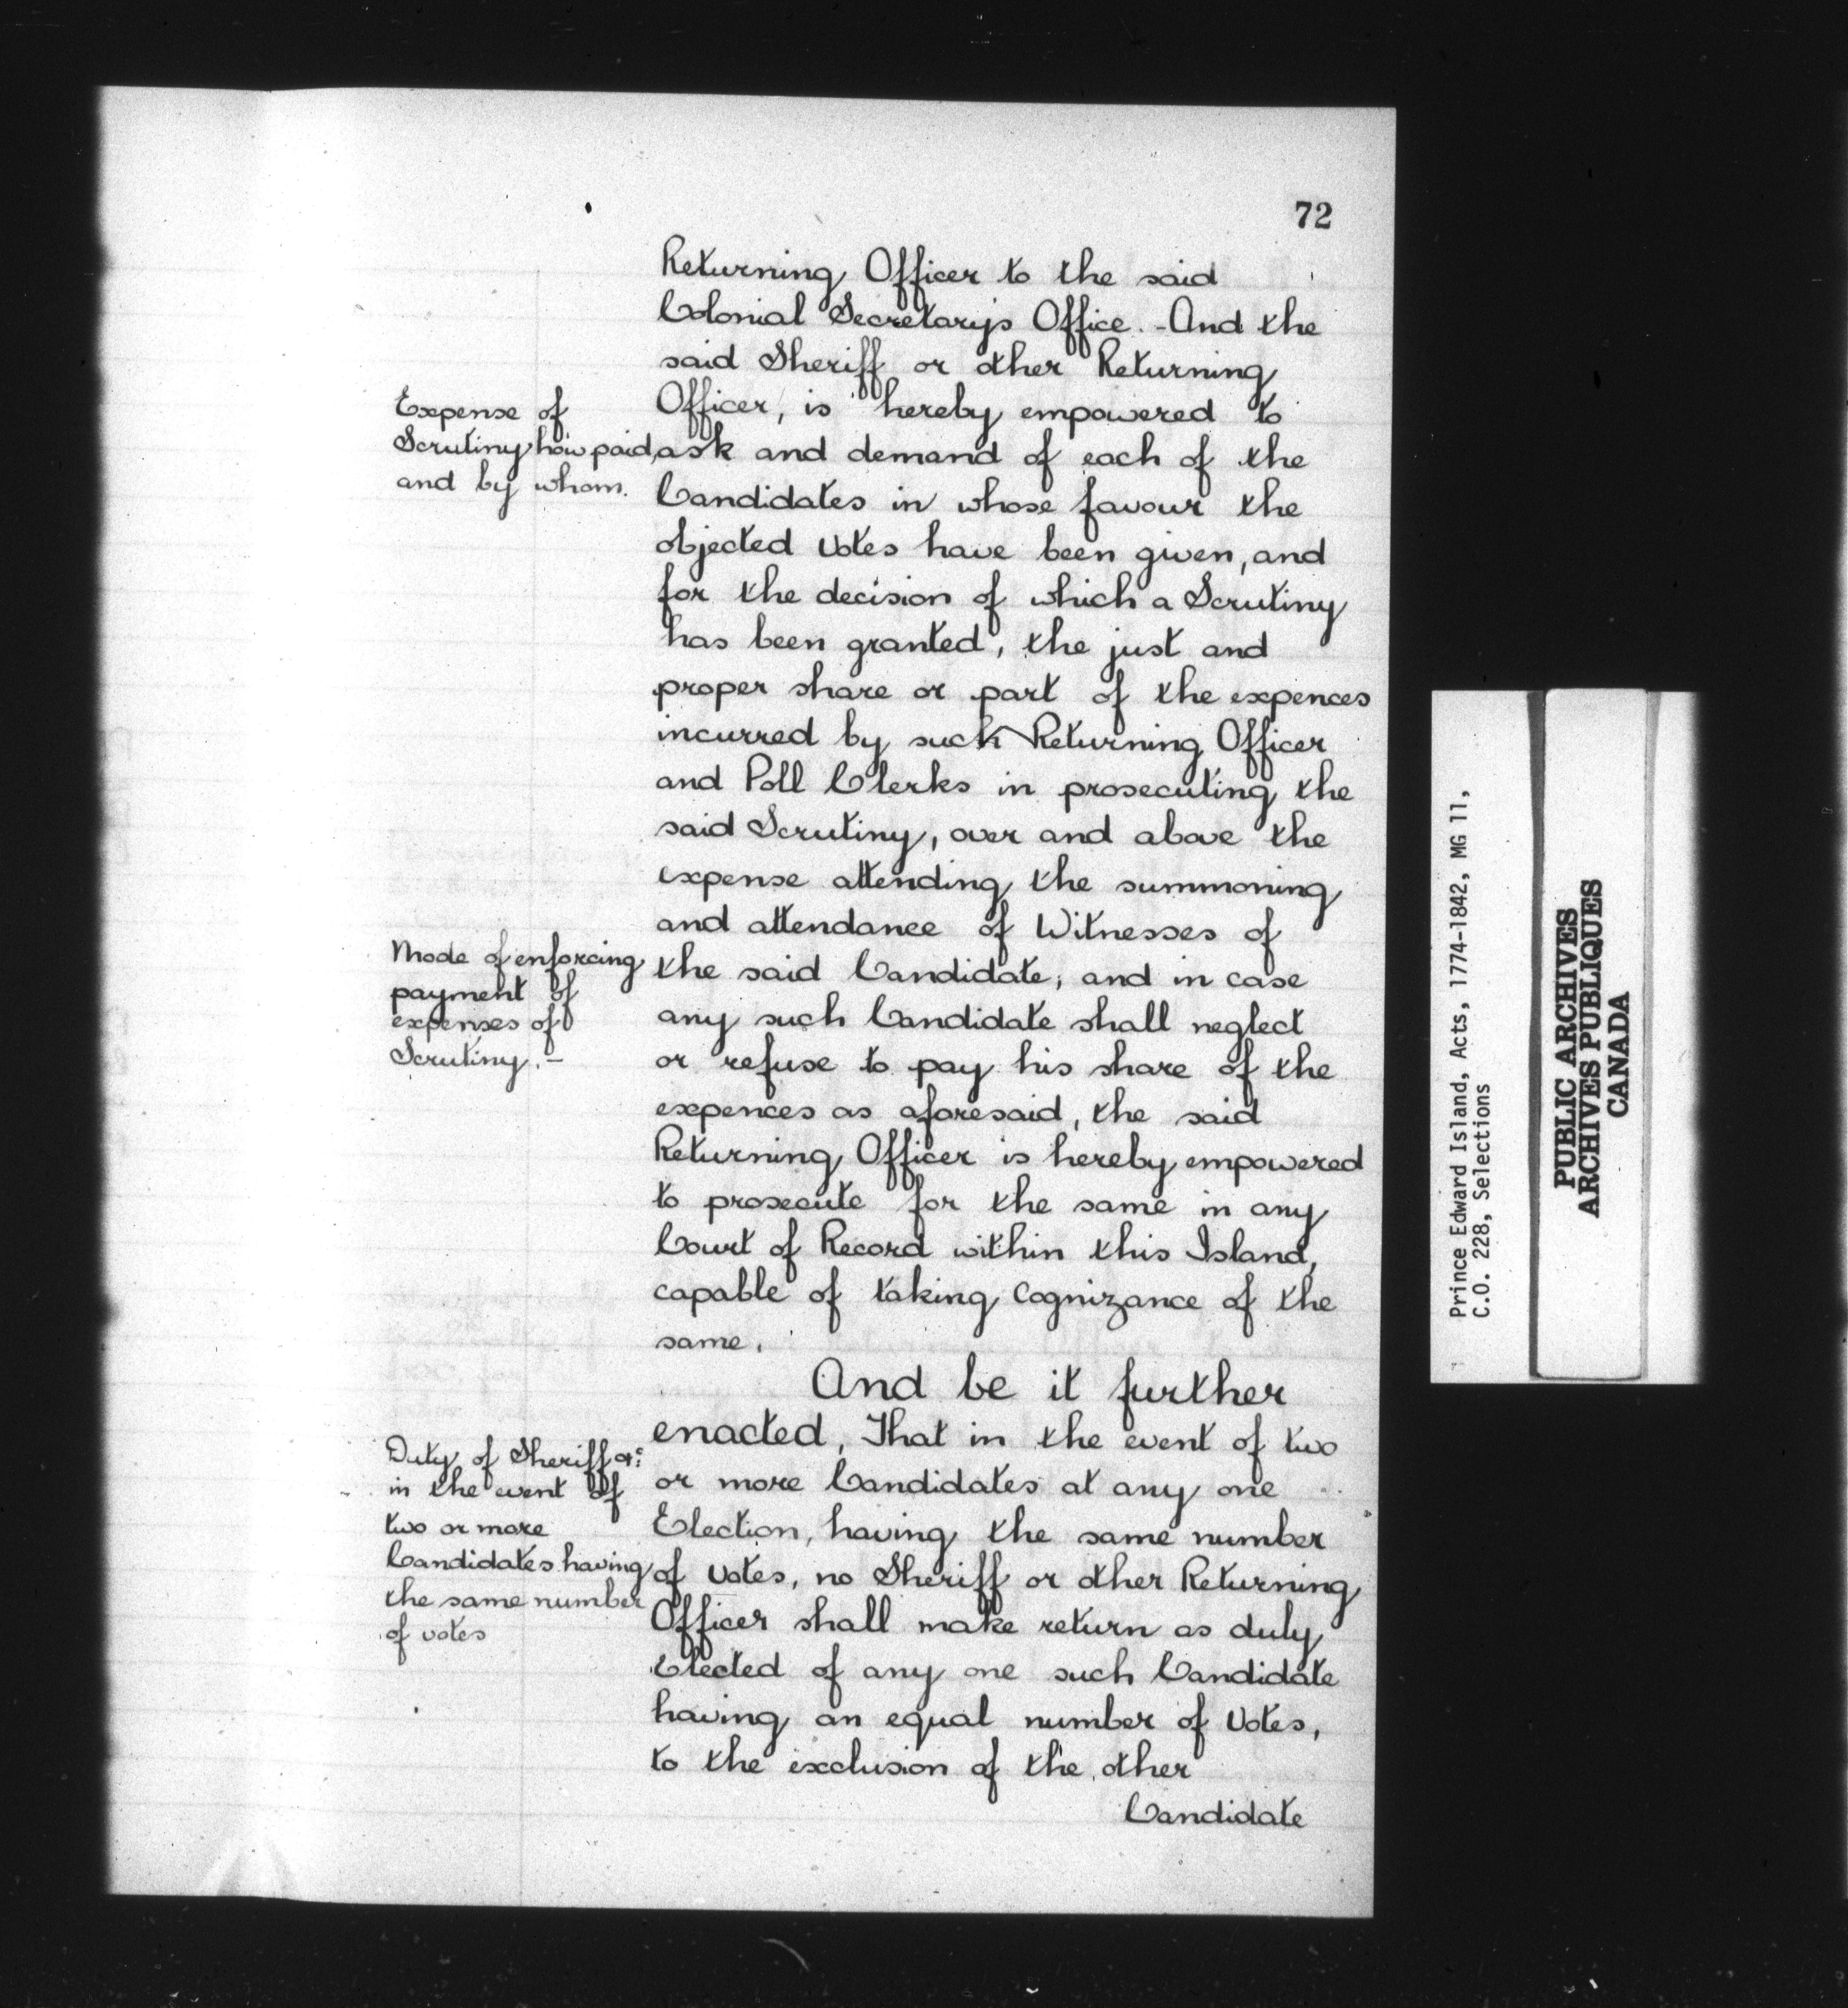 72
Returning Officer to the said
Colonial Secretarys Office. - And the
said Sheriff or other Returning
Officer, is hereby empowered to
ask and demand of each of the
Candidates in whose favour the
objected votes have been given, and
for the decision of which a Scrutiny
has been granted, the just and
proper share or part of the expences
incurred by such Returning Officer
and Poll Clerks in prosecuting the
said Scrutiny, over and above the
expense attending the summoning
and attendance of Witnesses of
the said Candidate; and in case
any such Candidate shall neglect
or refuse to pay his share of the
expences as aforesaid, the said
Returning Officer is hereby empowered
to prosecute for the same in any
Court of Record within this Island,
capable of taking Cognizance of the
same.
And be it further
enacted, That in the event of two
or more Candidates at any one
Election, having the same number
of votes, no Sheriff or other Returning
Officer shall make return as duly
Elected of any one such Candidate
having an equal number of Votes,
to the exclusion of the other
Candidate
Expense of
Scrutiny how paid,
and by whom.
Mode of enforcing
payment of
expenses of
Scrutiny. -
Duty of Sheriff &c
in the event of
two or more
Candidates having
the same number
of votes
Prince Edward Island, Acts, 1774-1842, MG 11,
C.O. 228, Selections
PUBLIC ARCHIVES
ARCHIVES PUBLIQUES
CANADA